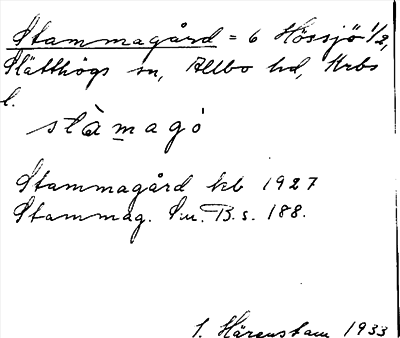 Stammagård = 6 Hössjö 1/2,
Slätthögs sn, Allbo hd, Krbs
l.
stàmagó
Stammagård kb 1927
Stammag. Sm. B. s. 188.
Härenstam 1933